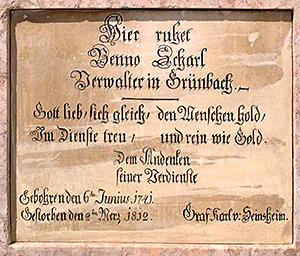 Hier ruhet
Benno Scharl
Verwalter in Grünbach.
Gott lieb, sich gleich, den Menschen hold,
Im Dienste treu, und rein wie Gold.
Dem Andenken
seiner Verdienste
Gebohren den 6ten Junius. 1741.
Gestorben den 2ten Merz 1812. Graf Karl v: Seinsheim.